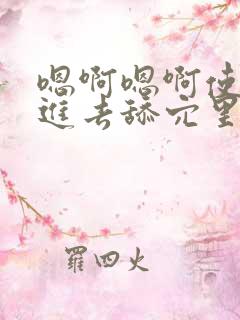 嗯啊嗯啊使
進去舔穴里
羅四火